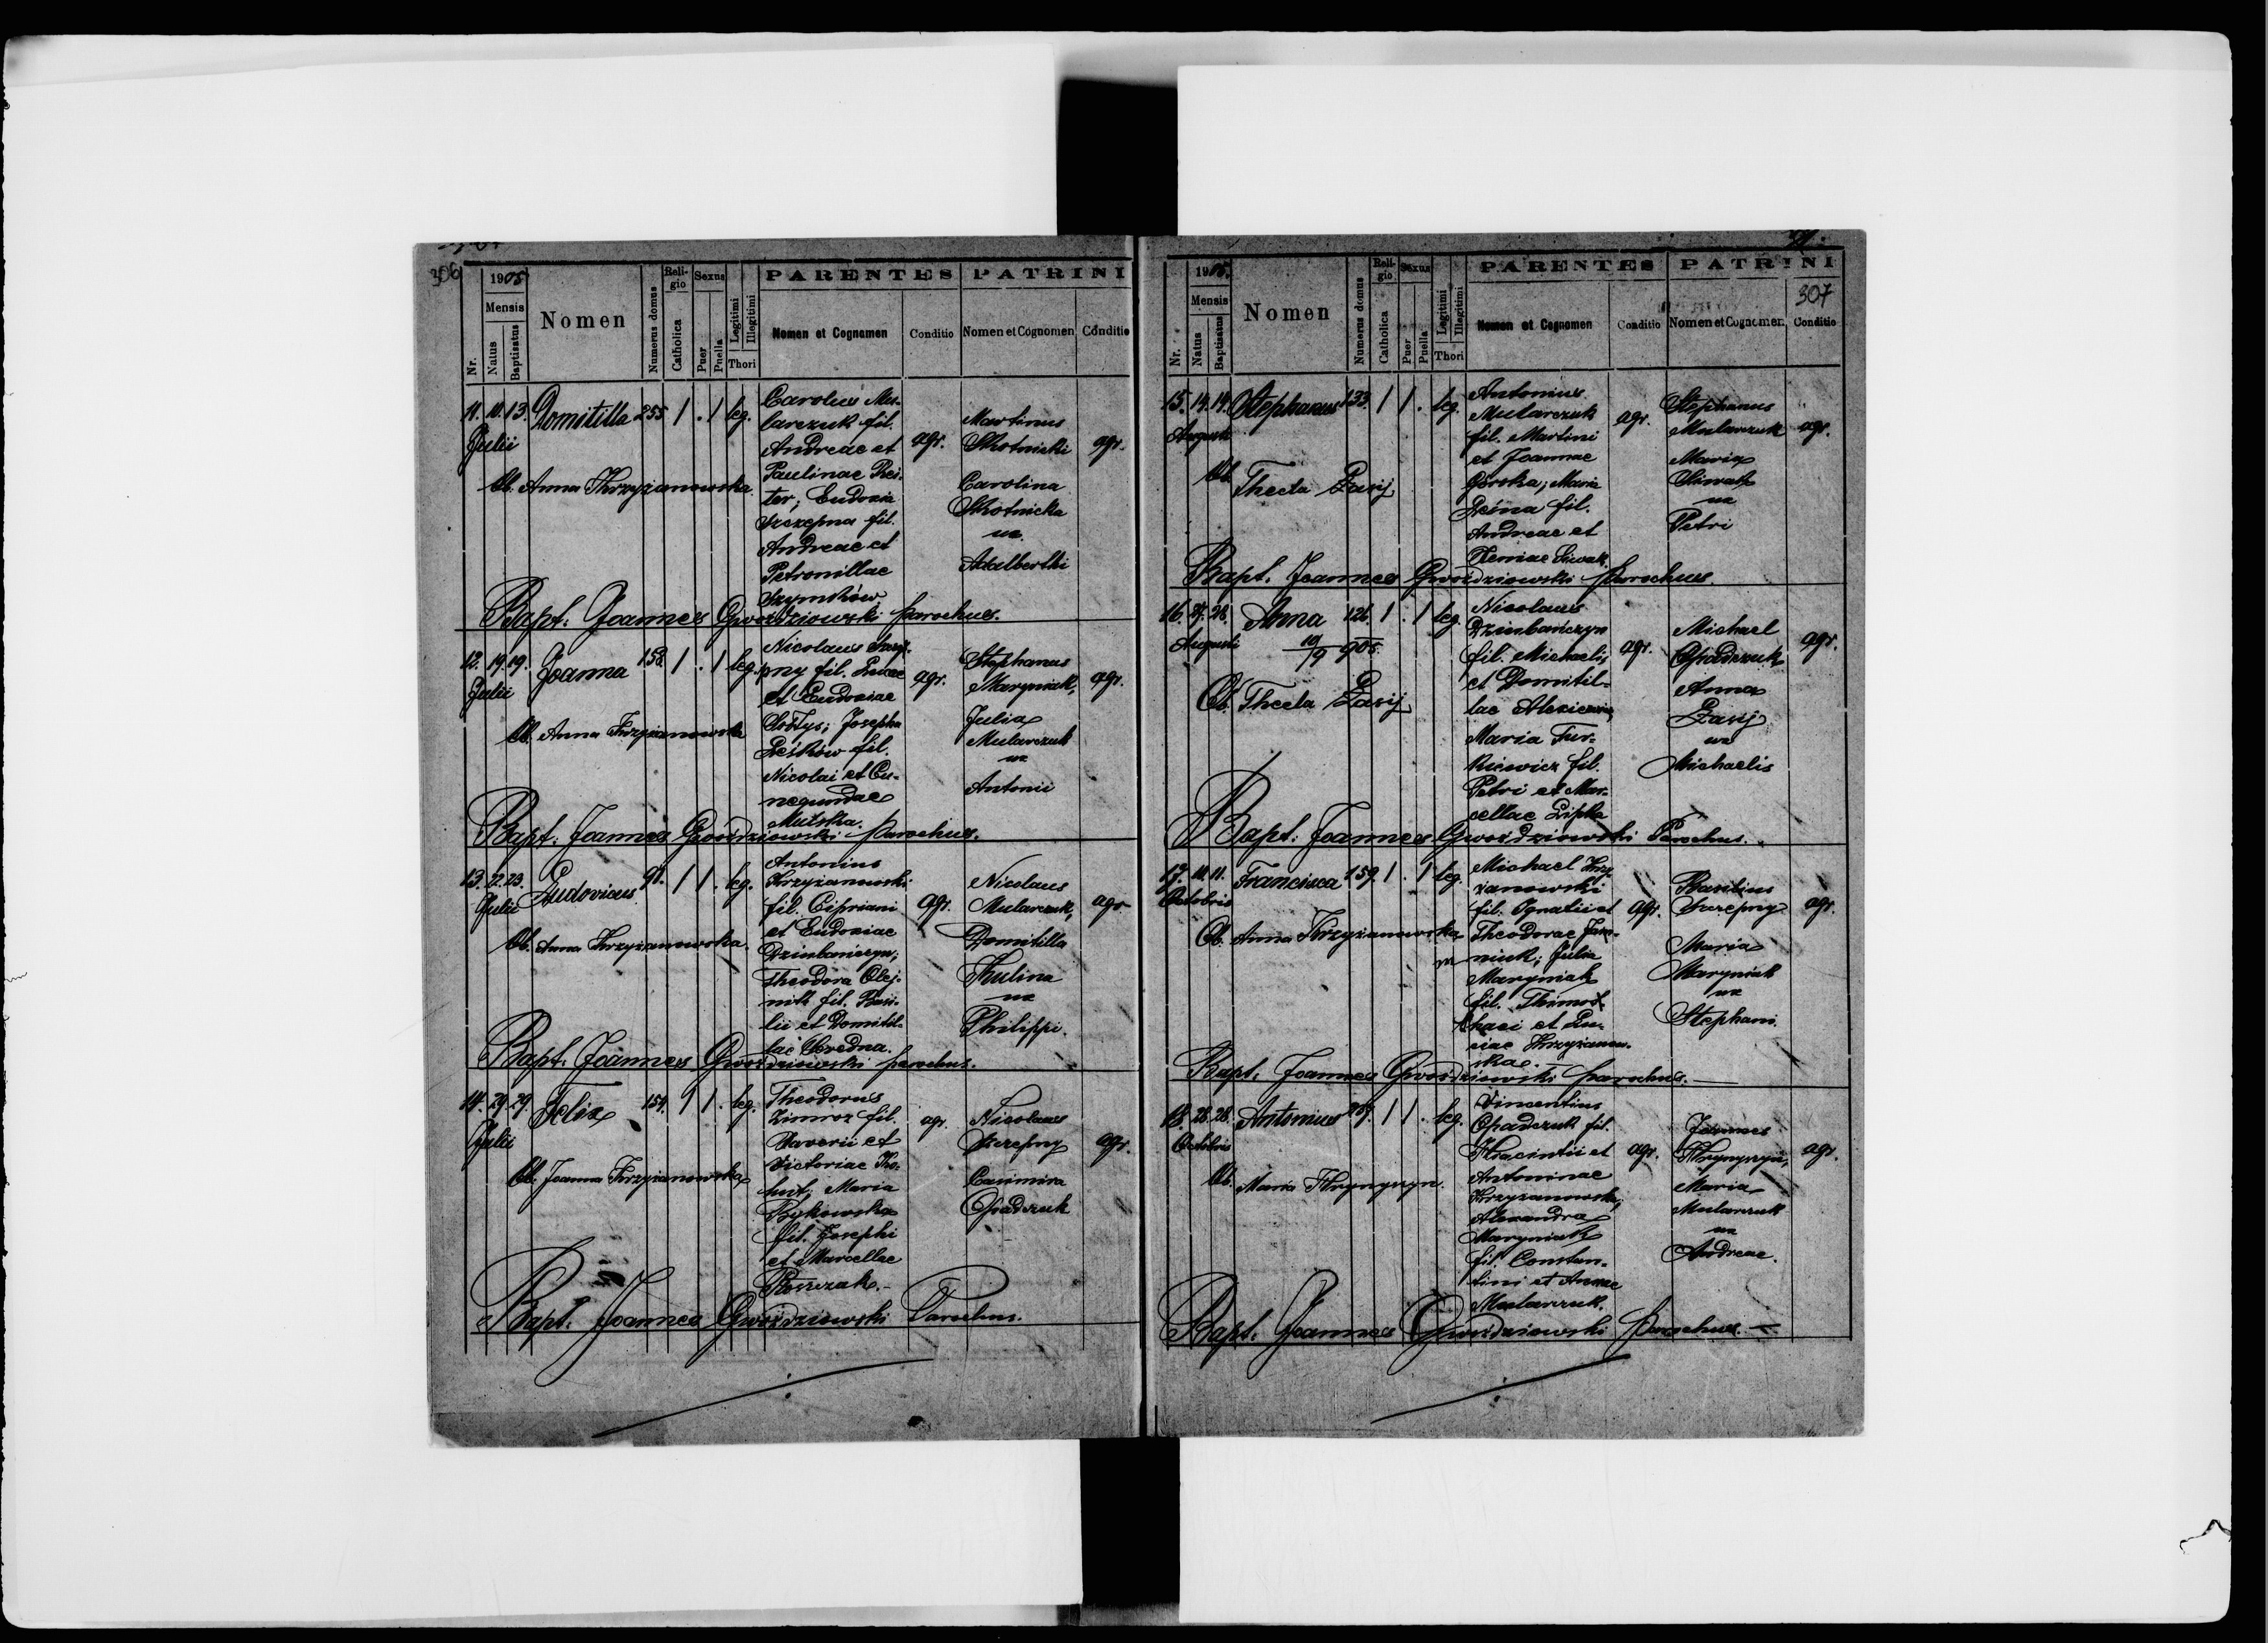 306
1905
Mensis
Nr.
Natus
Baptisatus
Nomen
Numerus domus
Religio
Catholica
Sexus
Puer
Puella
Legitimi
Illegitimi
Thori
PARENTES
Nomen et Cognomen
Conditio
PATRINI
Nomen et Cognomen
Conditio
11. 10. 13. Domitilla 255 1 . 1 leg.
Julii
Ob. Anna Krzyżanowska
Carolus Mu-
larczuk fil.
Andreae et
Paulinae Rei-
ter; Eudoxia
Szczepna fil.
Andreae et
Petronillae
Szymków
agr.
Martinus
Skotnicki
Carolina
Skotnicka
ux.
Adalberthi
agr.
Bapt. Joannes Gwoździowski parochus.
12. 19. 19. Joanna 158. 1 . 1 leg.
Julii
Ob. Anna Krzyżanowska
Nicolaus Szcze-
pny fil. Lucae
et Eudoxiae
Sołtys; Josepha
Leśków fil.
Nicolai et Cu-
negundae
Mulska.
agr.
Stephanus
Maryniak,
Julia
Mularczuk
ux
Antonii
agr.
Bapt. Joannes Gwoździowski parochus.
13. 22. 23. Ludovicus 91. 1 1 . leg.
Julii
Ob. Anna Krzyżanowska.
Antonius
Krzyżanowski
fil. Cipriani
et Eudoxiae
Dziubańczyn;
Theodora Olej-
nik fil. Basi-
lii et Domitil-
lae
agr.
Nicolaus
Mularczuk,
Domitilla
Kulina
ux
Philippi.
agr.
Bapt. Joannes Gwoździowski parochus.
14. 29. 29. Felix 154. 1 1 . leg.
Julii
Ob. Joanna Krzyżanowska
Theodorus
Zimroz fil.
Xaverii et
Victoriae Ko-
hut; Maria
Bykowska
fil. Josephi
et Marcellae
agr.
Nicolaus
Szczepny
Casimira
Opadczuk
agr.
Bapt. Joannes Gwoździowski Parochus.
307
1905.
Mensis
Nr.
Natus
Baptisatus
Nomen
Numerus domus
Religio
Catholica
Sexus
Puer
Puella
Legitimi
Illegitimi
Thori
PARENTES
Nomen et Cognomen
Conditio
PATRINI
Nomen et Cognomen
Conditio
15. 14. 14. Stephanus 133. 1 1 . leg.
Augusti
Ob. Thecla Zasij
Antonius
Mularczuk
fil. Martini
et Joannae
Górska; Maria
fil.
Andreae et
Xeniae Siwak
agr.
Stephanus
Mularczuk
Maria
Siwak
ux
Petri
agr.
Bapt. Joannes Gwoździowski parochus.
16. 27. 28. Anna 126. 1 . 1 leg.
Augusti 10/9 905
Ob. Thecla Zasij
Nicolaus
Dziubańczyn
fil. Michaelis
et Domitil-
lae Alexiewicz,
Maria Tur-
kiewicz fil.
Petri et Mar-
cellae Lipka
agr.
Michael
Opadczuk
Anna
Zasij
ux
Michaelis
agr.
Bapt. Joannes Gwoździowski Parochus.
17. 10. 11. Francisca 159. 1 . 1 leg.
Octobris
Ob. Anna Krzyżanowska
Michael Krzy-
żanowski
fil. Ignatii et
Theodorae Jare-
niuk; Julia
Maryniak
fil. Thimot
haei et Lu-
ciae Krzyżanow-
skae.
agr.
Basilius
Szczepny
Maria
Maryniak
ux
Stephani.
agr.
Bapt. Joannes Gwoździowski parochus.
18. 28. 28. Antonius 1 1 . leg.
Octobris
Ob. Maria Hrynyszyn.
Vincentius
Opadczuk fil.
Hiacintii et
Antoninae
Krzyżanowska;
Alexandra
Maryniak
fil. Constan-
tini et Annae
Mularczuk.
agr.
Joannes
Hrynyszyn,
Maria
Mularczuk
ux
Andreae.
agr.
Bapt. Joannes Gwoździowski parochus.